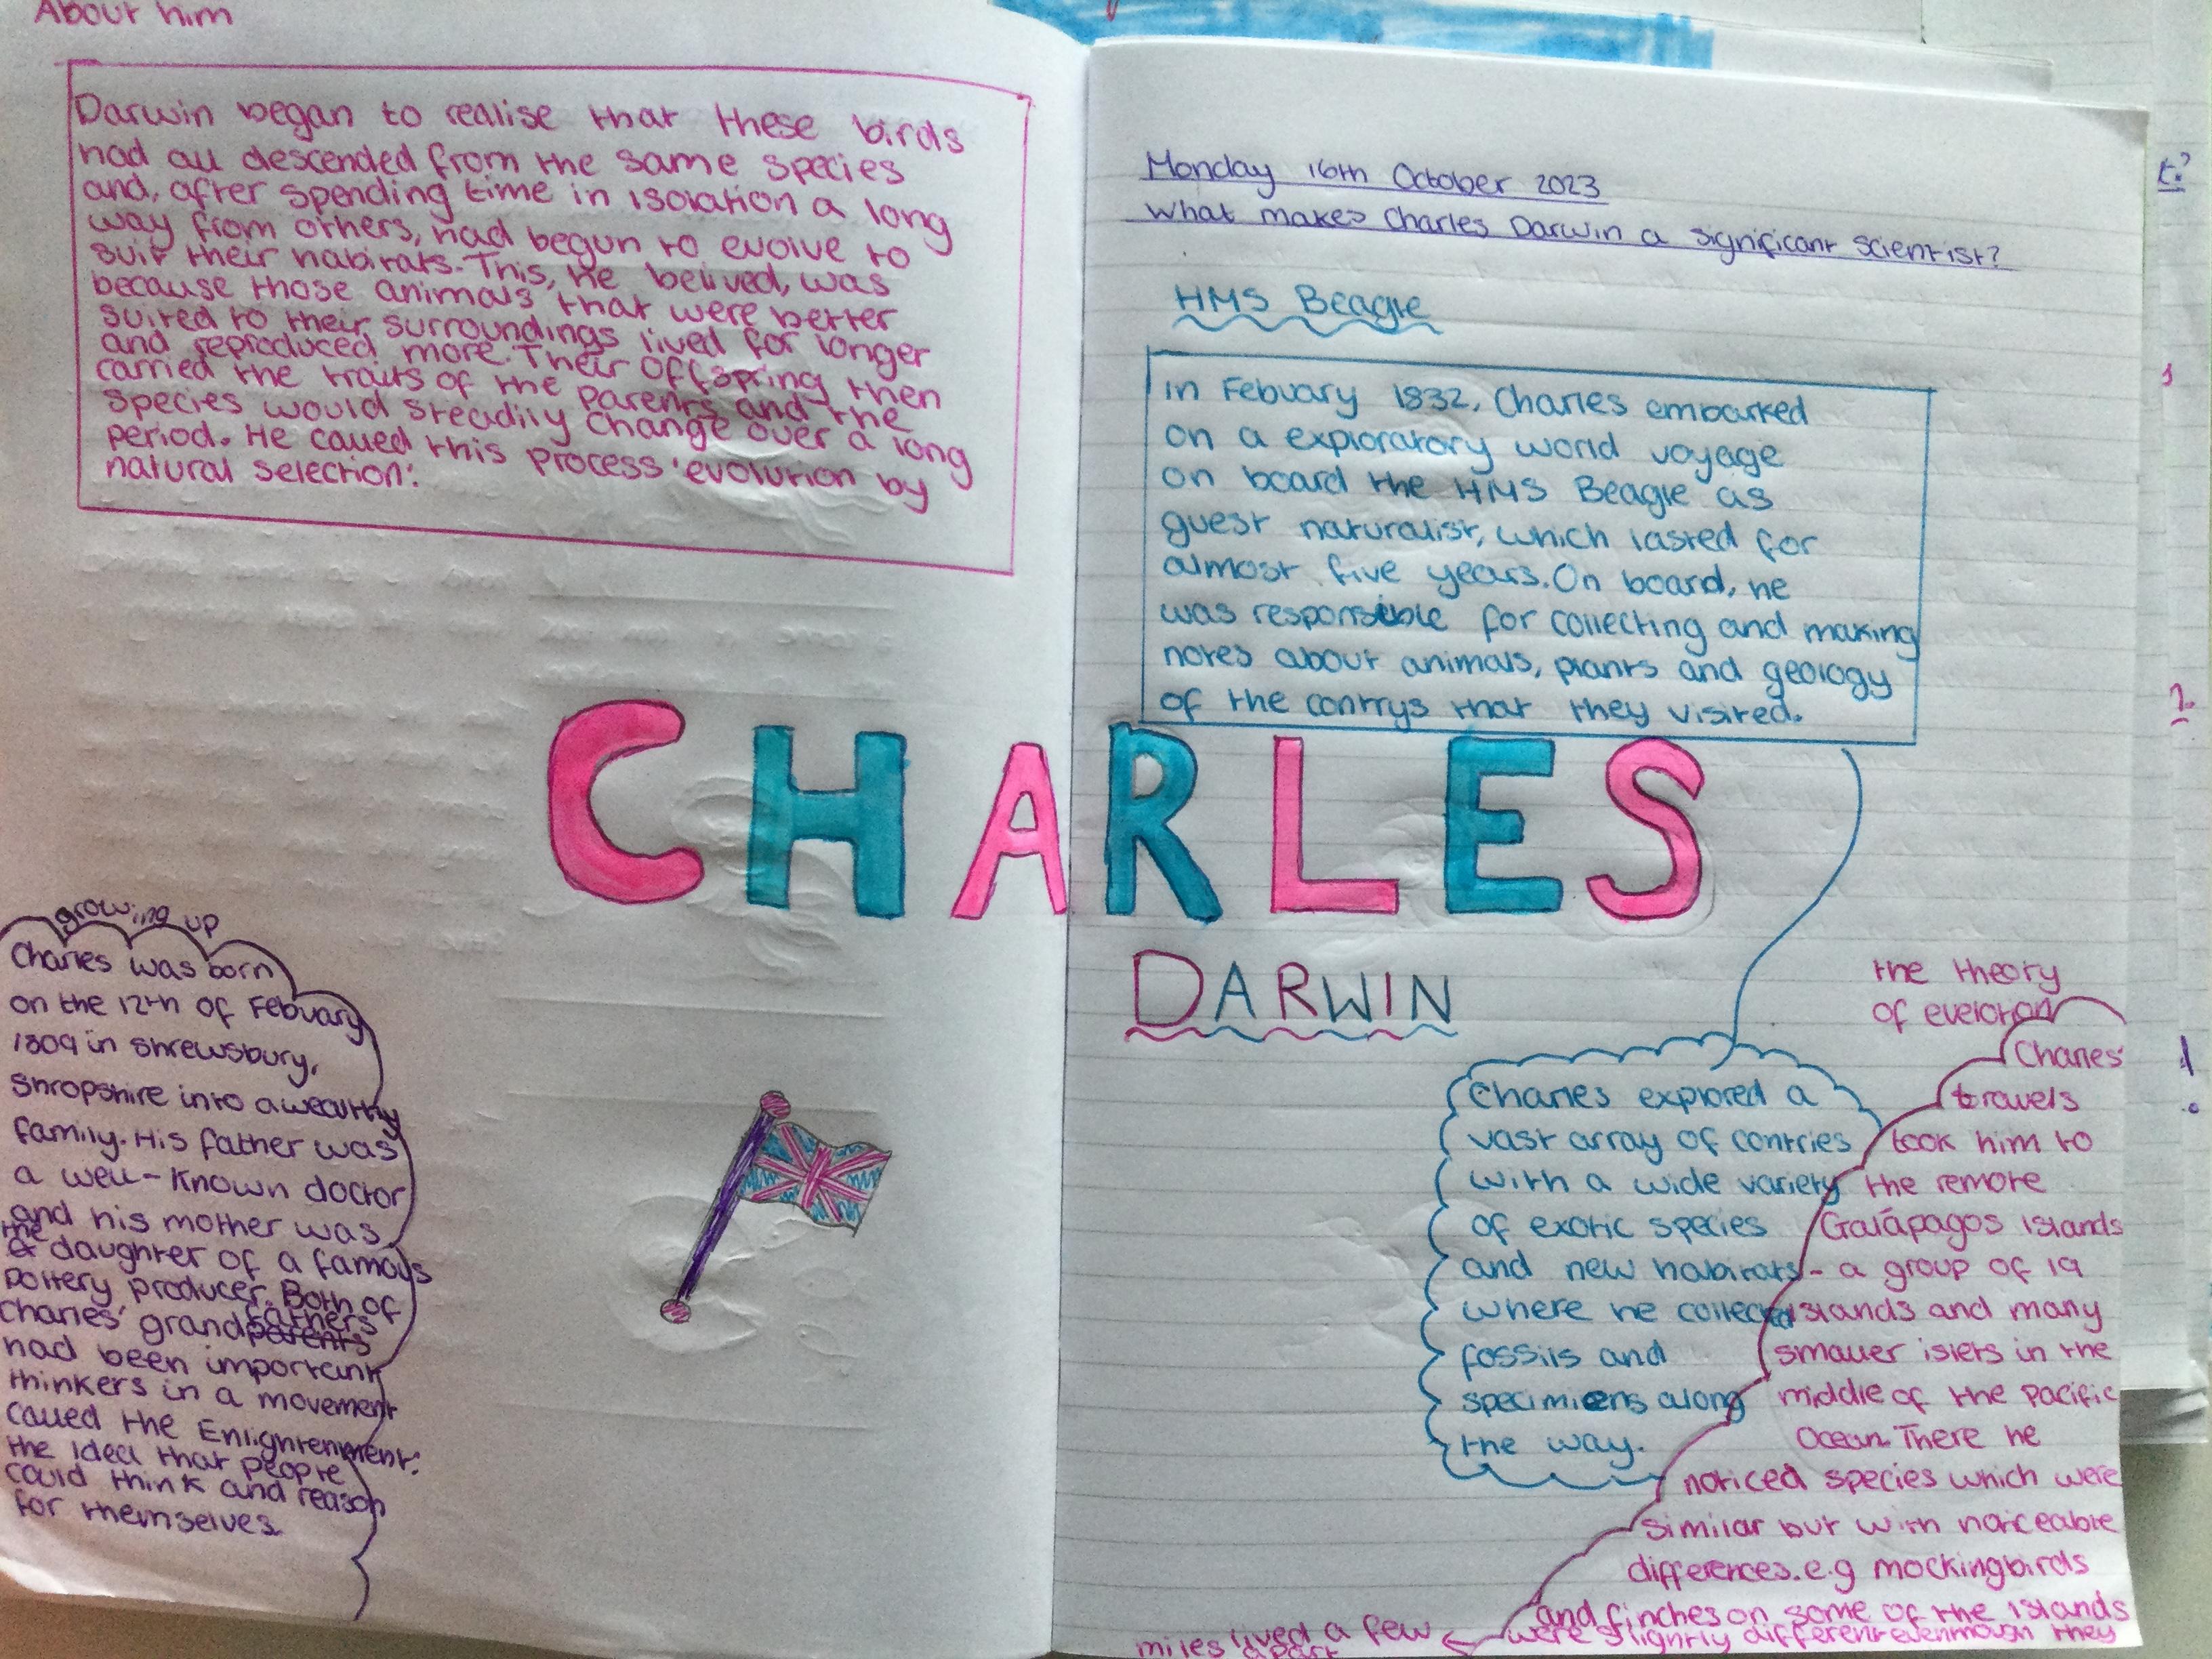 About him
Darwin began to realise that these birds
had all descended from the same species
and, after spending time in isolation a long
way from others, had begun to evolve to
suit their habitats. This, he belived, was
because those animals that were better
suited to their surroundings lived for longer
and reproduced more. Their offspring then
carried the traits of the parents and the
species would steadily change over a long
period. He called this process 'evolution by
natural selection'.
growing up
Charles was born
on the 12th of Febuary
1809 in Shrewsbury,
Shropshire into a wealthy
family. His father was
a well-known doctor
and his mother was
the daughter of a famous
pottery producer. Both of
Charles' grandfathers
parents
had been important
thinkers in a movement
called the Enlightenment:
the idea that people
could think and reason
for themselves.
Monday 16th October 2023
What makes Charles Darwin a significant scientist?
HMS Beagle
in Febuary 1832, Charles embarked
on a exploratory world voyage
on board the HMS Beagle as
guest naturalist, which lasted for
almost five years. On board, he
was responsible for collecting and making
notes about animals, plants and geology
of the contrys that they visited.
CHARLES
DARWIN
Charles explored a
vast array of contries
with a wide variety
of exotic species
and new habitats
where he collected
fossils and
specimens along
the way.
the theory
of evelotion
Charles'
travels
took him to
the remote
Galápagos islands
- a group of 19
islands and many
smaller islets in the
middle of the pacific
Ocean. There he
noticed species which were
similar but with noticeable
differences. e.g mockingbirds
and finches on some of the islands
were slightly different eventhough they
miles lived a few
apart
t?
1
2.
!